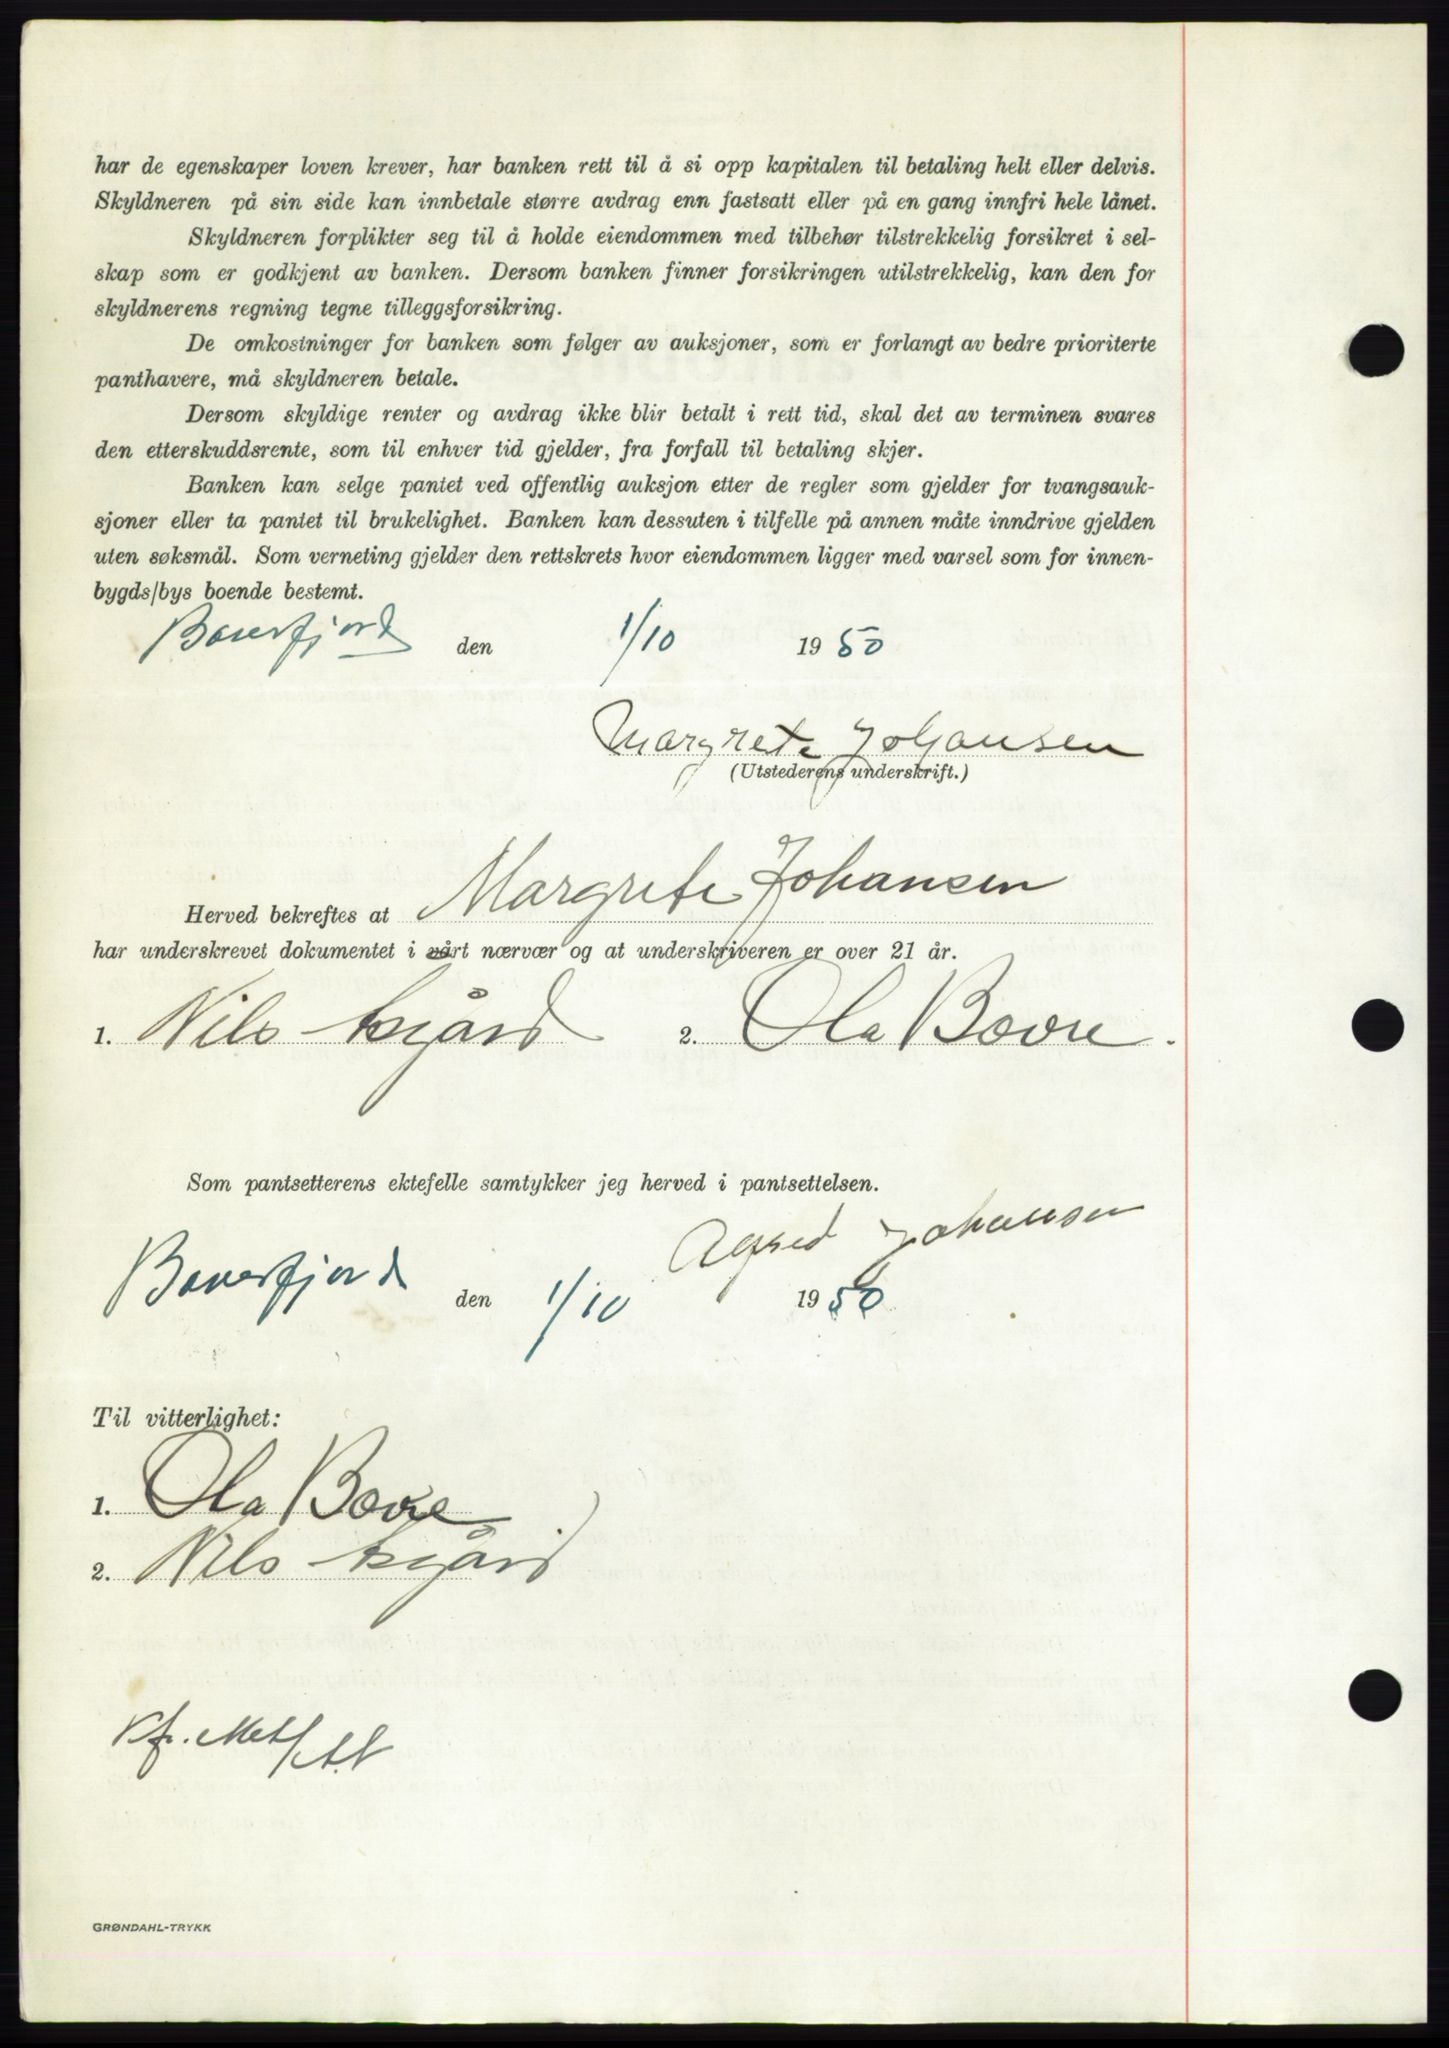 har de egenskaper loven krever, har banken rett til å si opp kapitalen til betaling helt eller delvis.
Skyldneren på sin side kan innbetale større avdrag enn fastsatt eller på en gang innfri hele lånet.
Skyldneren forplikter seg til å holde eiendommen med tilbehør tilstrekkelig forsikret i sel-
skap som er godkjent av banken. Dersom banken finner forsikringen utilstrekkelig, kan den for
skyldnerens regning tegne tilleggsforsikring.
De omkostninger for banken som følger av auksjoner, som er forlangt av bedre prioriterte
panthavere, må skyldneren betale.
Dersom skyldige renter og avdrag ikke blir betalt i rett tid, skal det av terminen svares
den etterskuddsrente, som til enhver tid gjelder, fra forfall til betaling skjer.
Banken kan selge pantet ved offentlig auksjon etter de regler som gjelder for tvangsauk-
sjoner eller ta pantet til brukelighet. Banken kan dessuten i tilfelle på annen måte inndrive gjelden
uten søksmål. Som verneting gjelder den rettskrets hvor eiendommen ligger med varsel som for innen-
bygds/bys boende bestemt.
den 1/10 1950
Margrete Johansen
(Utstederens underskrift.)
Herved bekreftes at Margrete Johansen
har underskrevet dokumentet i vårt nærvær og at underskriveren er over 21 år.
1. Nils 2. Ola Bovre.
Som pantsetterens ektefelle samtykker jeg herved i pantsettelsen.
Johansen
den 1/10 1950
Til vitterlighet:
1. Ola Bovre
2. Nils
GRØNDAHL-TRYKK